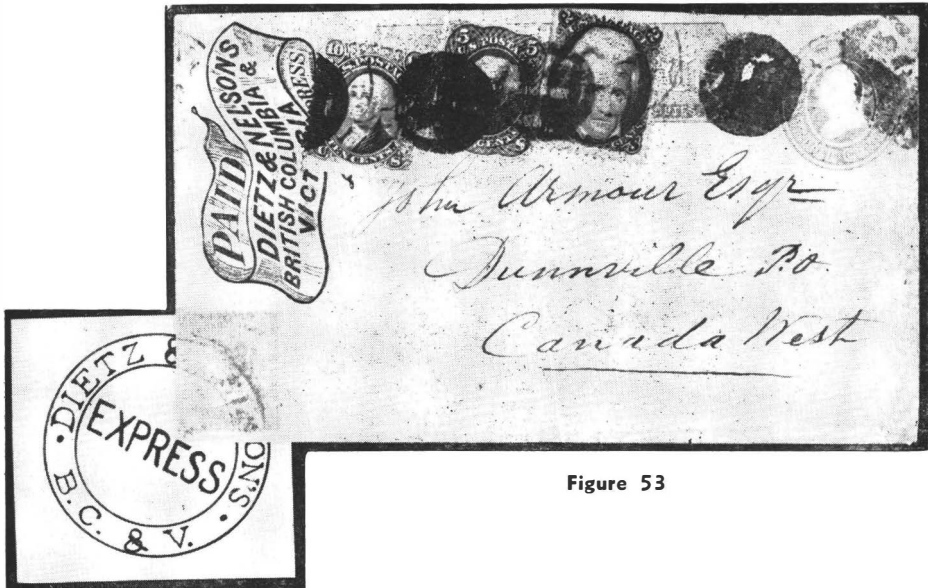 PAID
DIETZ & NELSONS
BRITISH COLUMBIA &
VICT RESS
U.S. POSTAGE
10
5 5
John Armour Esqr
Dunnville P.O.
Canada West
DIETZ & ON'S
EXPRESS
B.C. & V.
Figure 53